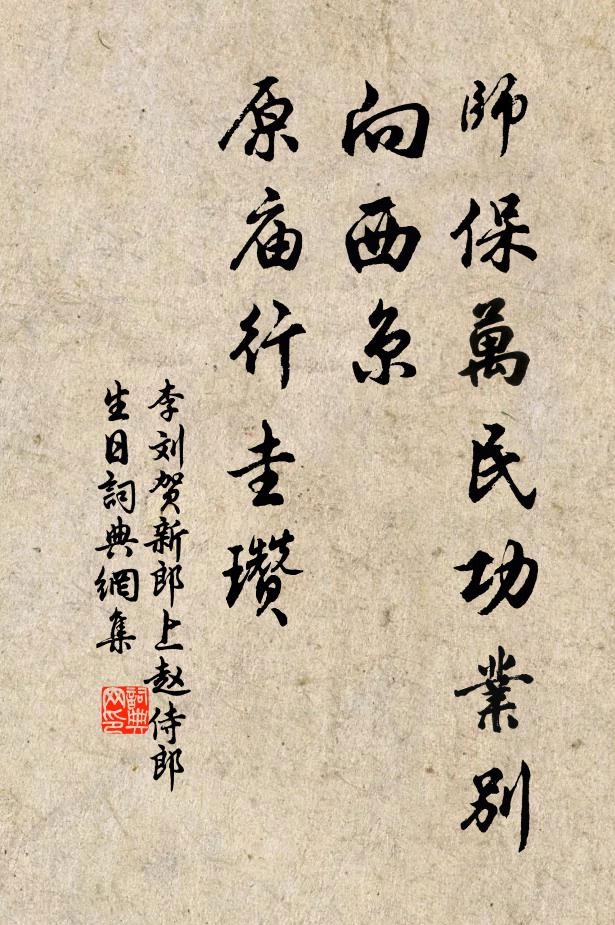 師保萬民功業別
向西京
原庙行圭瓒
李刘贺新郎上赵侍郎
生日詞典網集
詞典
网印